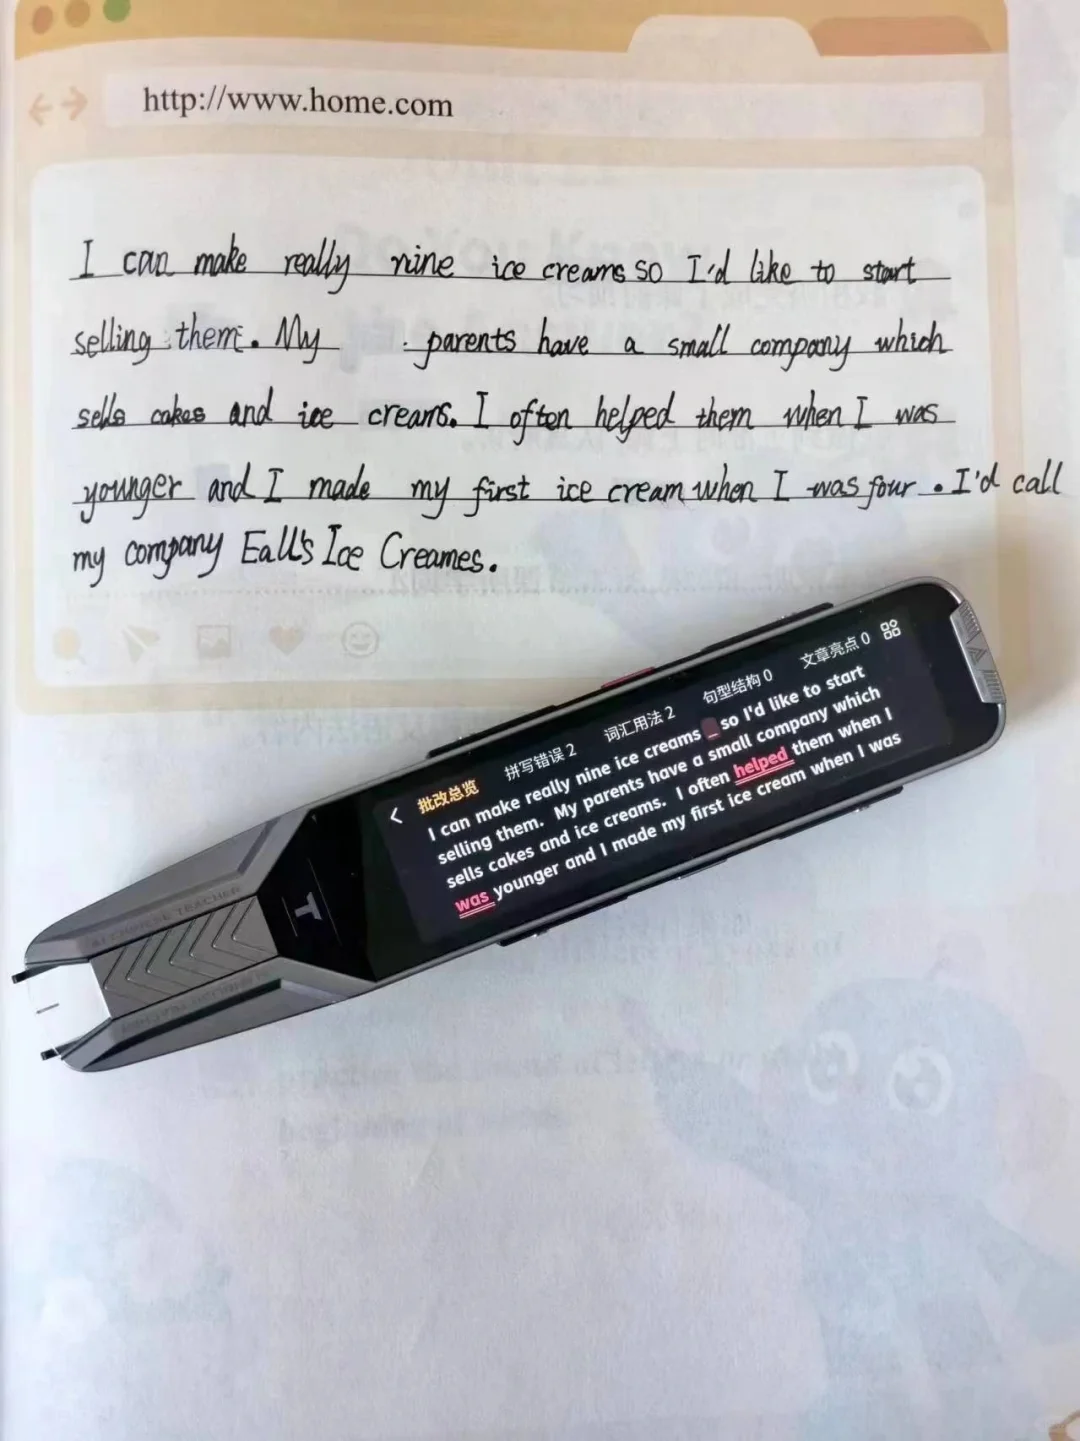 http://www.home.com
I can make really nine ice creams so I'd like to start
selling them. My parents have a small company which
sells cakes and ice creams. I often helped them when I was
younger and I made my first ice cream when I was four. I'd call
my company Eall's Ice Creames.
批改总览 拼写错误 2 词汇用法 2 句型结构 0 文章亮点 0
I can make really nine ice creams _ so I'd like to start
selling them. My parents have a small company which
sells cakes and ice creams. I often helped them when I
was younger and I made my first ice cream when I was
T